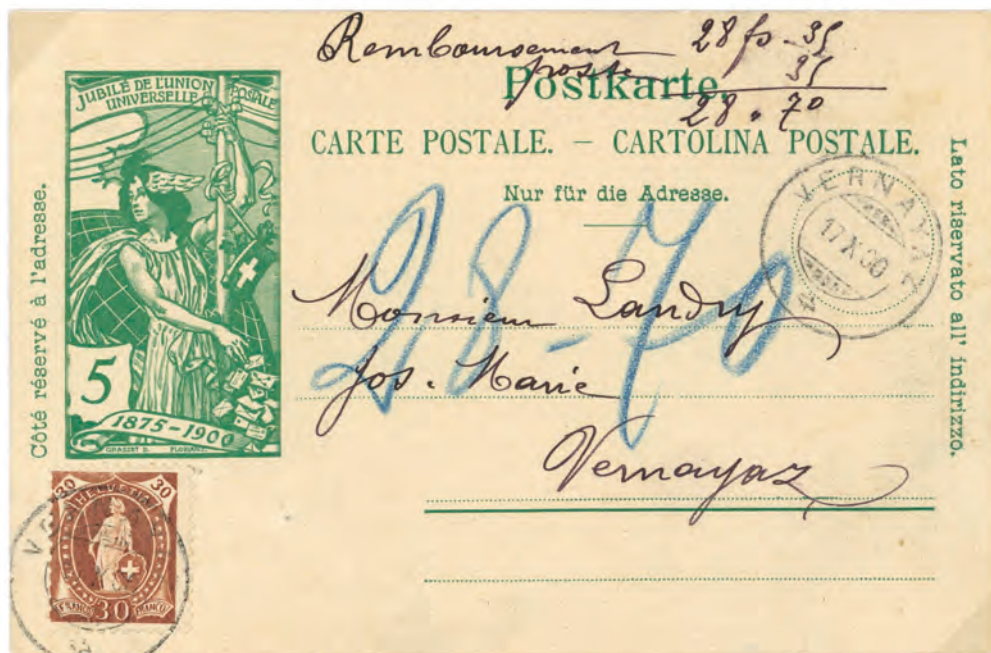 Remboursement 28 fs - 35
poste 35
28 . 70
Postkarte.
CARTE POSTALE. – CARTOLINA POSTALE.
Nur für die Adresse.
Côté réservé à l'adresse.
Lato riservato all' indirizzo.
JUBILÉ DE L'UNION POSTALE
UNIVERSELLE
5
1875-1900
GRASSET D. FLORIAN
VERNAYAZ
17 X 00
28-70
Monsieur Landry
Jos. Marie
Vernayaz
30 30
HELVETIA
FRANCO 30 FRANCO